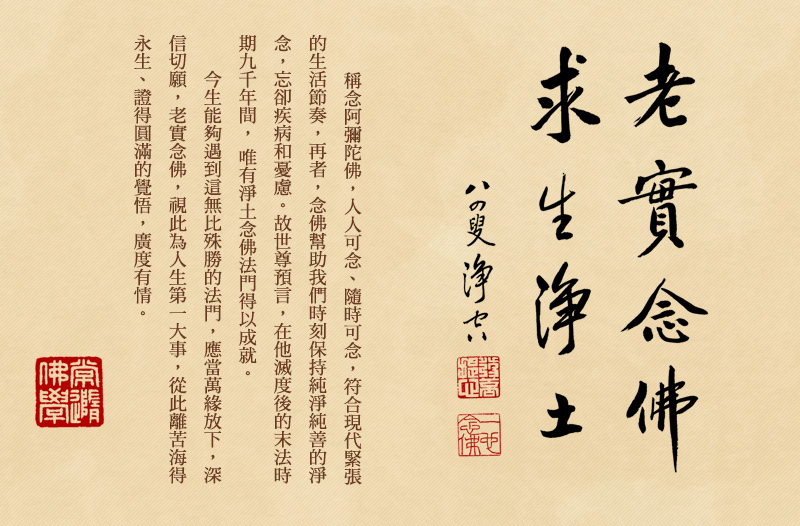 老實念佛
求生淨土
八四叟 淨空
稱念阿彌陀佛，人人可念、隨時可念，符合現代緊張
的生活節奏，再者，念佛幫助我們時刻保持純淨純善的淨
念，忘卻疾病和憂慮。故世尊預言，在他滅度後的末法時
期九千年間，唯有淨土念佛法門得以成就。
今生能夠遇到這無比殊勝的法門，應當萬緣放下，深
信切願，老實念佛，視此為人生第一大事，從此離苦海得
永生、證得圓滿的覺悟，廣度有情。